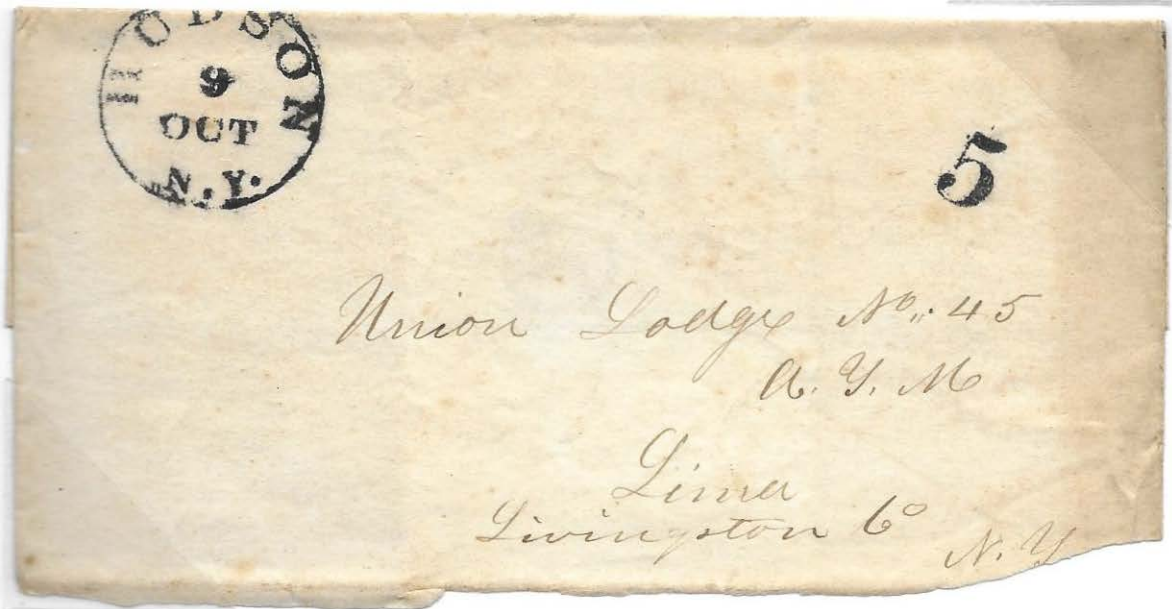 HUDSON
9
OCT
N.Y.
5
Union Lodge No. 45
A. Y. M
Lima
Livingston Co
N. Y